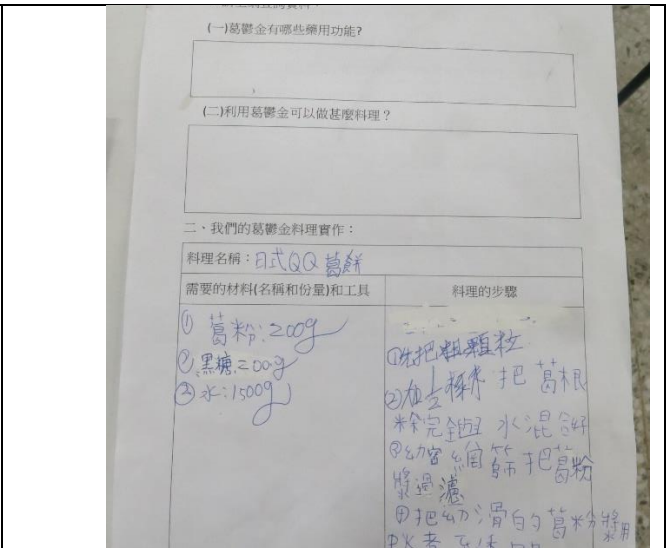 (一)葛鬱金有哪些藥用功能?
(二)利用葛鬱金可以做甚麼料理?
二、我們的葛鬱金料理實作:
料理名稱:日式QQ葛餅
需要的材料(名稱和份量)和工具
料理的步驟
① 葛粉:200g
②黑糖:200g
③水:1500g
①先把粗顆粒
② 把葛根
水混合好
③ 細篩把葛粉
漿過濾
④把幼滑的葛粉漿用